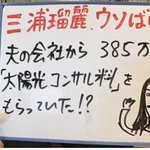 三浦瑠麗、ウソば
夫の会社から 385万
「太陽光コンサル料」を
もらっていた!?